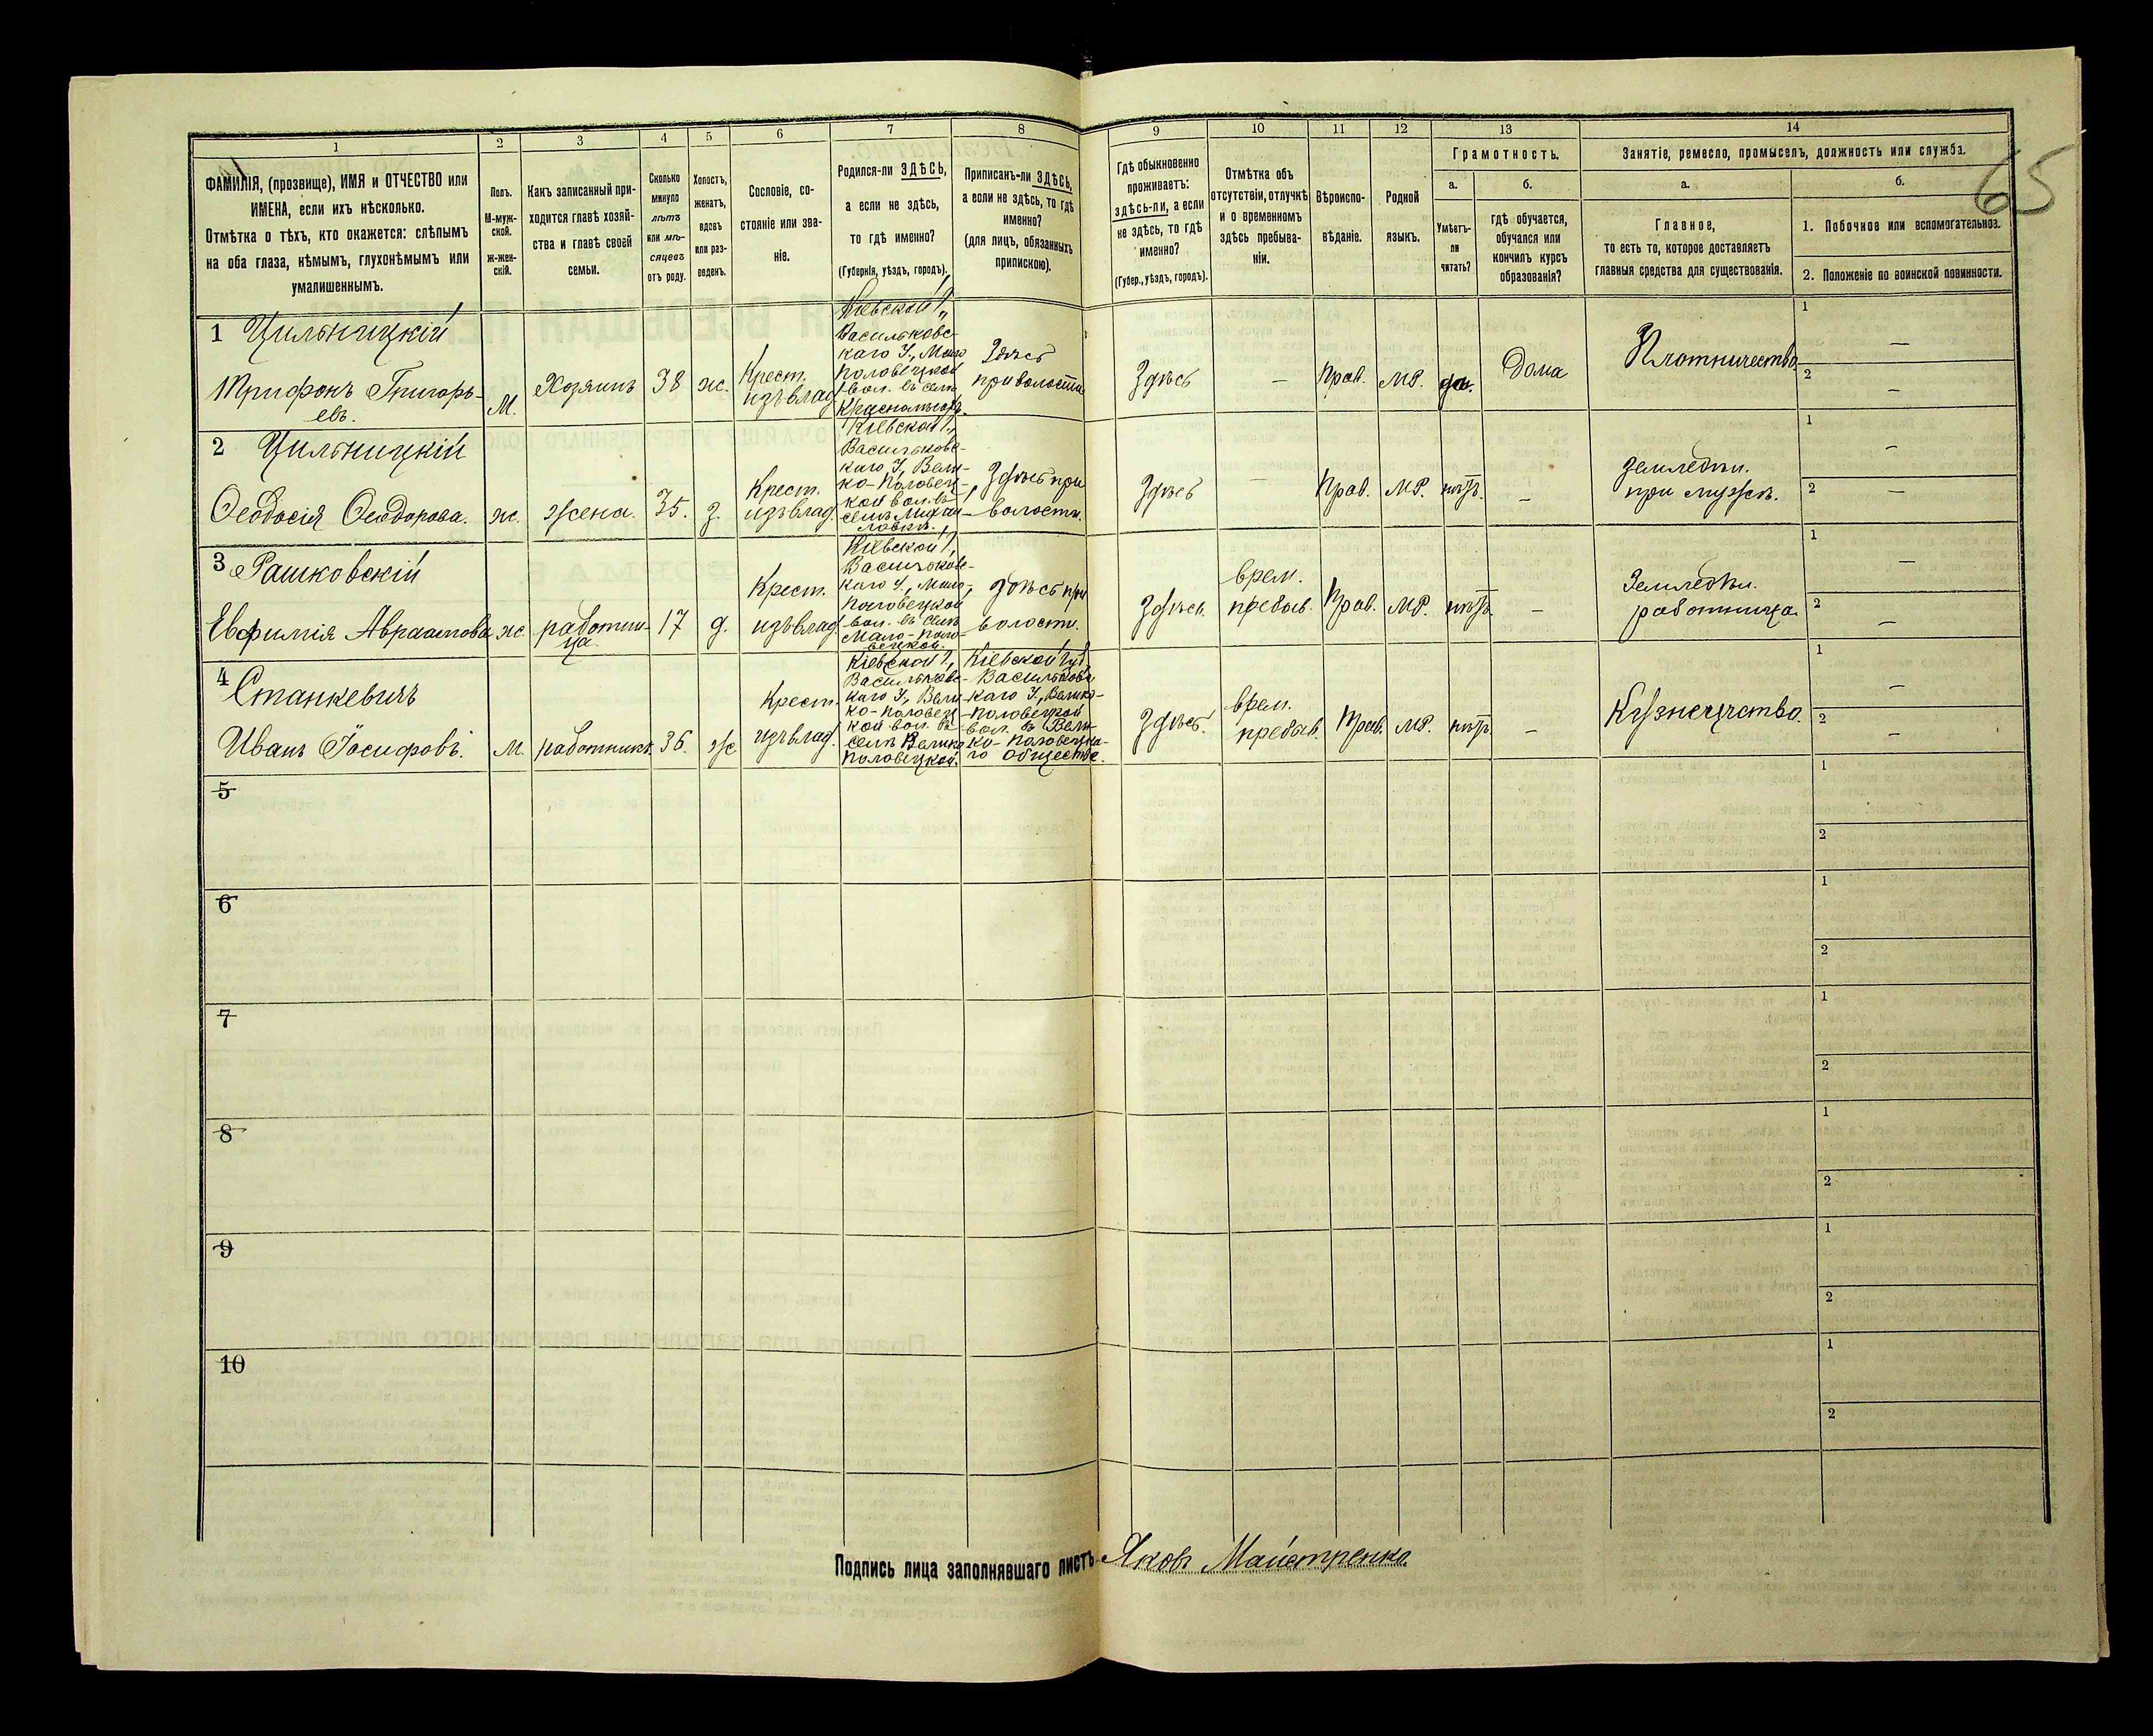 1
2
3
4
5
6
7
8
9
10
11
12
13
14
65
ФАМИЛІЯ, (прозвище), ИМЯ и ОТЧЕСТВО или
ИМЕНА, если ихъ нѣсколько.
Отмѣтка о тѣхъ, кто окажется: слѣпымъ
на оба глаза, нѣмымъ, глухонѣмымъ или
умалишеннымъ.
Полъ.
М-муж-
ской.
ж-жен-
скій.
Какъ записанный при-
ходится главѣ хозяй-
ства и главѣ своей
семьи.
Сколько
минуло
лѣтъ
или мѣ-
сяцевъ
отъ роду.
Холостъ,
женатъ,
вдовъ
или раз-
веденъ.
Сословіе, со-
стояніе или зва-
ніе.
Родился-ли ЗДѢСЬ,
а если не здѣсь,
то гдѣ именно?
(Губернія, уѣздъ, городъ).
Приписанъ-ли ЗДѢСЬ,
а если не здѣсь, то гдѣ
именно?
(для лицъ, обязанныхъ
припискою).
Гдѣ обыкновенно
проживаетъ:
здѣсь-ли, а если
не здѣсь, то гдѣ
именно?
(Губер., уѣздъ, городъ).
Отмѣтка объ
отсутствіи, отлучкѣ
и о временномъ
здѣсь пребыва-
ніи.
Вѣроиспо-
вѣданіе.
Родной
языкъ.
Грамотность.
а.
Умѣетъ-
ли
читать?
б.
гдѣ обучается,
обучался или
кончилъ курсъ
образованія?
Занятіе, ремесло, промыселъ, должность или служба.
а.
Главное,
то есть то, которое доставляетъ
главныя средства для существованія.
б.
1. Побочное или вспомогательное.
2. Положеніе по воинской повинности.
1 Цильницкій
Трифонъ Григорь-
евъ.
М.
Хозяинъ
38
ж.
Крест.
изъ влад.
Кіевской Г.,
Васильковс-
каго У., Мало
Половецкой
вол. въ селѣ
Здѣсь
при волости
Здѣсь
—
Прав.
МР.
да.
Дома
Плотничество
1 —
2 —
2 Цильницкій
Ѳеодосія Ѳеодорова.
ж.
жена.
35.
з.
Крест.
изъ влад.
Кіевской Г.,
Васильковс-
каго У., Вели-
ко-Половец-
кой вол. въ
селѣ Михай-
ловкѣ.
Здѣсь при
волости.
Здѣсь
—
Прав.
МР.
нѣтъ.
—
Земледѣл.
при мужѣ.
1 —
2 —
3 Рашковскій
Евфимія Авраамова
ж
работни-
ца.
17
д.
Крест.
изъ влад.
Кіевской Г.,
Васильковс-
каго У., Мало-
Половецкой
вол. въ селѣ
Мало-Поло-
вецкой.
Здѣсь при
волости.
Здѣсь.
врем.
пребыв.
Прав.
МР.
нѣтъ
—
Земледѣл.
работница.
1 —
2 —
4 Станкевичъ
Иванъ Іосифовъ.
М.
работникъ.
36.
ж
Крест.
изъ влад.
Кіевской Г.,
Васильковс-
каго У., Вели-
ко-Половец-
кой вол. въ
селѣ Велико
Половецкой.
Кіевской Губ.
Васильковс
каго У., Велико-
Половецкой
вол. въ Вели-
ко-Половецка-
го обществе.
Здѣсь.
врем.
пребыв.
Прав.
МР.
нѣтъ.
—
Кузнечество.
1 —
2 —
5
1
2
6
1
2
7
1
2
8
1
2
9
1
2
10
1
2
Подпись лица заполнявшаго листъ Яковъ Майстренко